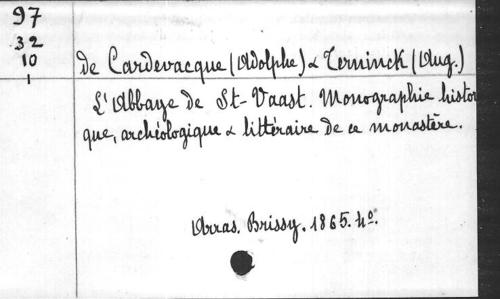 97
32
10
1
de Cardevacque (Adolphe) & Terninck (Aug.)
L'Abbaye de St-Vaast. Monographie histor
que, archéologique & littéraire de ce monastère.
Arras. Brissy. 1865. 4º.